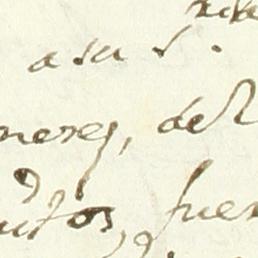 a su S.
neres, del
utos, fuer